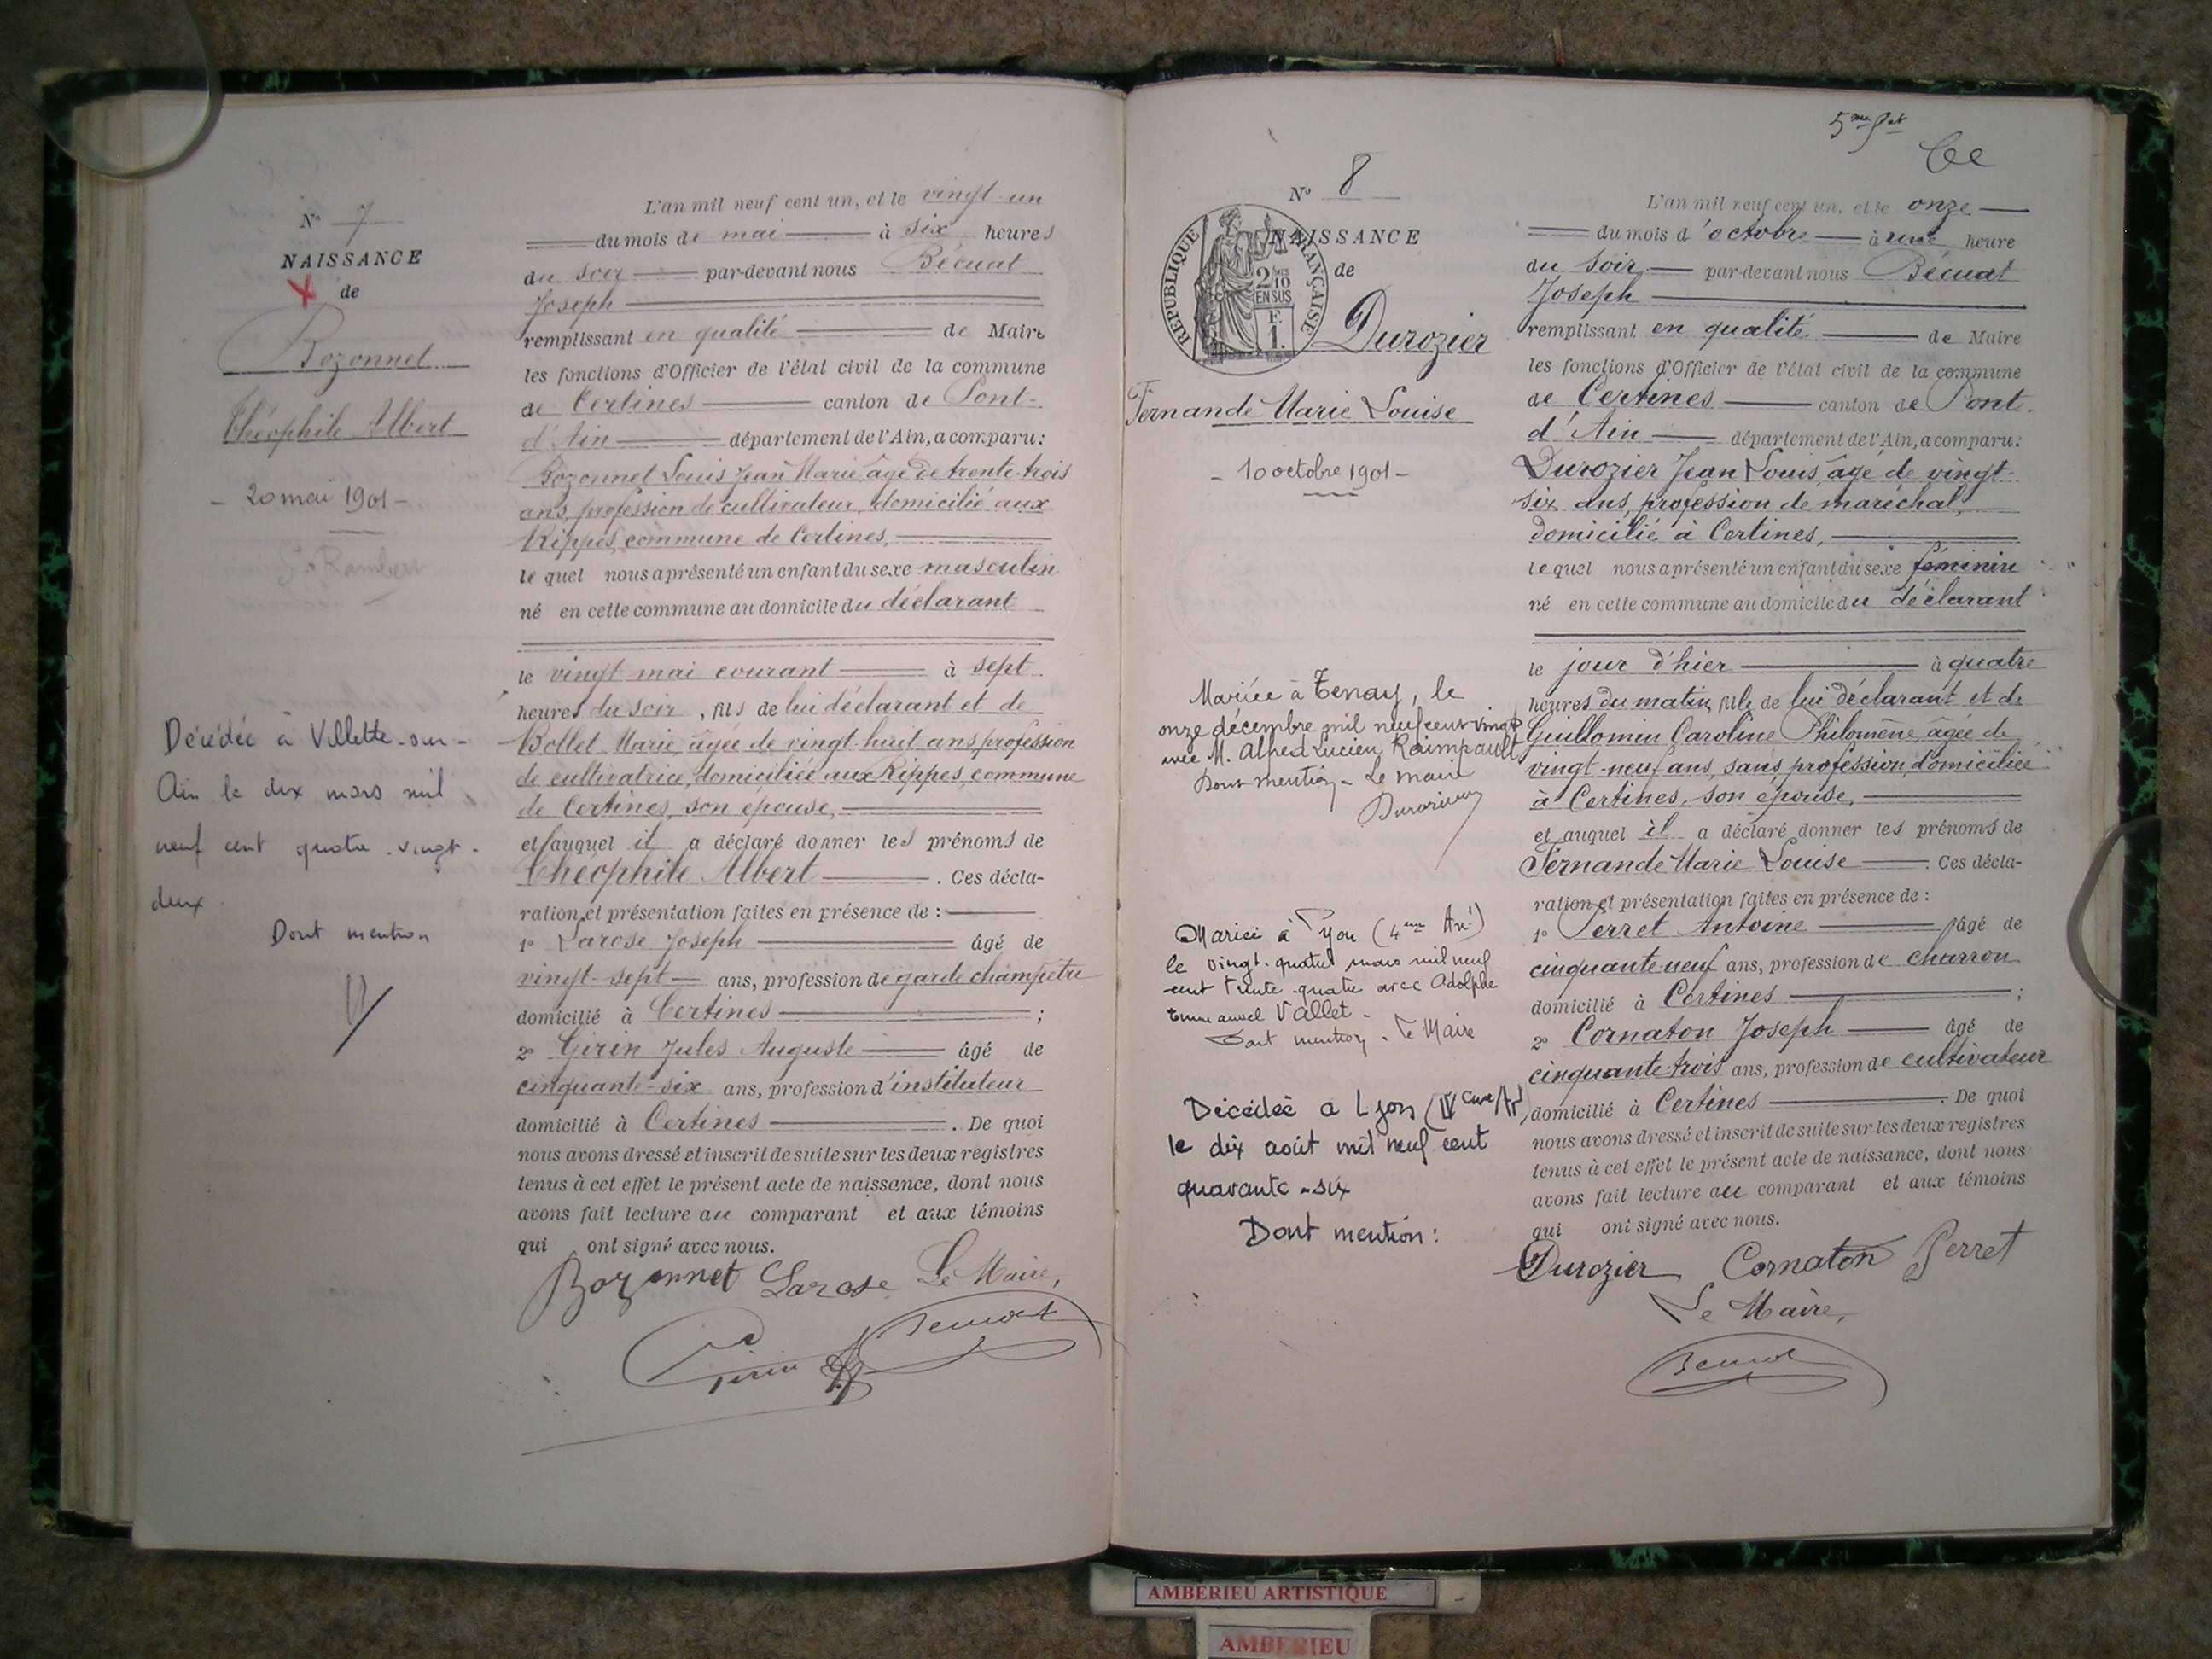 N° 7
NAISSANCE
de
Bozonnet
Théophile Albert
- 20 mai 1901 -
St Rambert
Décédée à Villette-sur-
Ain le dix mars mil
neuf cent quatre-vingt-
deux.
Dont mention
L'an mil neuf cent un, et le vingt-un
du mois de mai à six heures
du soir par-devant nous Bécuat
Joseph
remplissant en qualité de Maire
les fonctions d'Officier de l'état civil de la commune
de Certines canton de Pont-
d'Ain département de l'Ain, a comparu:
Bozonnet Louis Jean Marie âgé de trente-trois
ans, profession de cultivateur, domicilié aux
Rippes, commune de Certines,
lequel nous a présenté un enfant du sexe masculin
né en cette commune au domicile du déclarant
le vingt mai courant à sept
heures du soir, fils de lui déclarant et de
Bollet Marie, âgée de vingt-huit ans, profession
de cultivatrice, domiciliée aux Rippes, commune
de Certines, son épouse,
et auquel il a déclaré donner les prénoms de
Théophile Albert. Ces décla-
ration et présentation faites en présence de :
1° Larose Joseph âgé de
vingt-sept ans, profession de garde champêtre
domicilié à Certines ;
2° Girin Jules Auguste âgé de
cinquante-six ans, profession d'instituteur
domicilié à Certines. De quoi
nous avons dressé et inscrit de suite sur les deux registres
tenus à cet effet le présent acte de naissance, dont nous
avons fait lecture au comparant et aux témoins
qui ont signé avec nous.
Bozonnet Larose Le Maire,
Girin Bécuat
5me fet
N° 8
NAISSANCE
de
REPUBLIQUE FRANÇAISE
2/10
EN SUS
F.
1.
Durozier
Fernande Marie Louise
- 10 octobre 1901 -
Mariée à Tenay, le
onze décembre mil neuf cent vingt
avec M. Alfred Lucien Raimpault
Dont mention - Le maire
Mariée à Lyon (4me Arrt)
le vingt-quatre mars mil neuf
cent trente-quatre avec Adolphe
Emmanuel Vallet.
Dont mention. Le Maire
Décédée à Lyon (IV Arrt)
le dix août mil neuf cent
quarante-six
Dont mention :
L'an mil neuf cent un, et le onze
du mois d'octobre à une heure
du soir par-devant nous Bécuat
Joseph
remplissant en qualité de Maire
les fonctions d'Officier de l'état civil de la commune
de Certines canton de Pont-
d'Ain département de l'Ain, a comparu:
Durozier Jean Louis âgé de vingt-
six ans, profession de maréchal,
domicilié à Certines,
lequel nous a présenté un enfant du sexe féminin
né en cette commune au domicile du déclarant
le jour d'hier à quatre
heures du matin, fille de lui déclarant et de
Guillomin Caroline Philomène, âgée de
vingt-neuf ans, sans profession, domiciliée
à Certines, son épouse,
et auquel il a déclaré donner les prénoms de
Fernande Marie Louise. Ces décla-
ration et présentation faites en présence de :
1° Perret Antoine âgé de
cinquante-neuf ans, profession de charron
domicilié à Certines ;
2° Cornaton Joseph âgé de
cinquante-trois ans, profession de cultivateur
domicilié à Certines. De quoi
nous avons dressé et inscrit de suite sur les deux registres
tenus à cet effet le présent acte de naissance, dont nous
avons fait lecture au comparant et aux témoins
qui ont signé avec nous.
Durozier Cornaton Perret
Le Maire,
Bécuat
AMBERIEU ARTISTIQUE
AMBERIEU